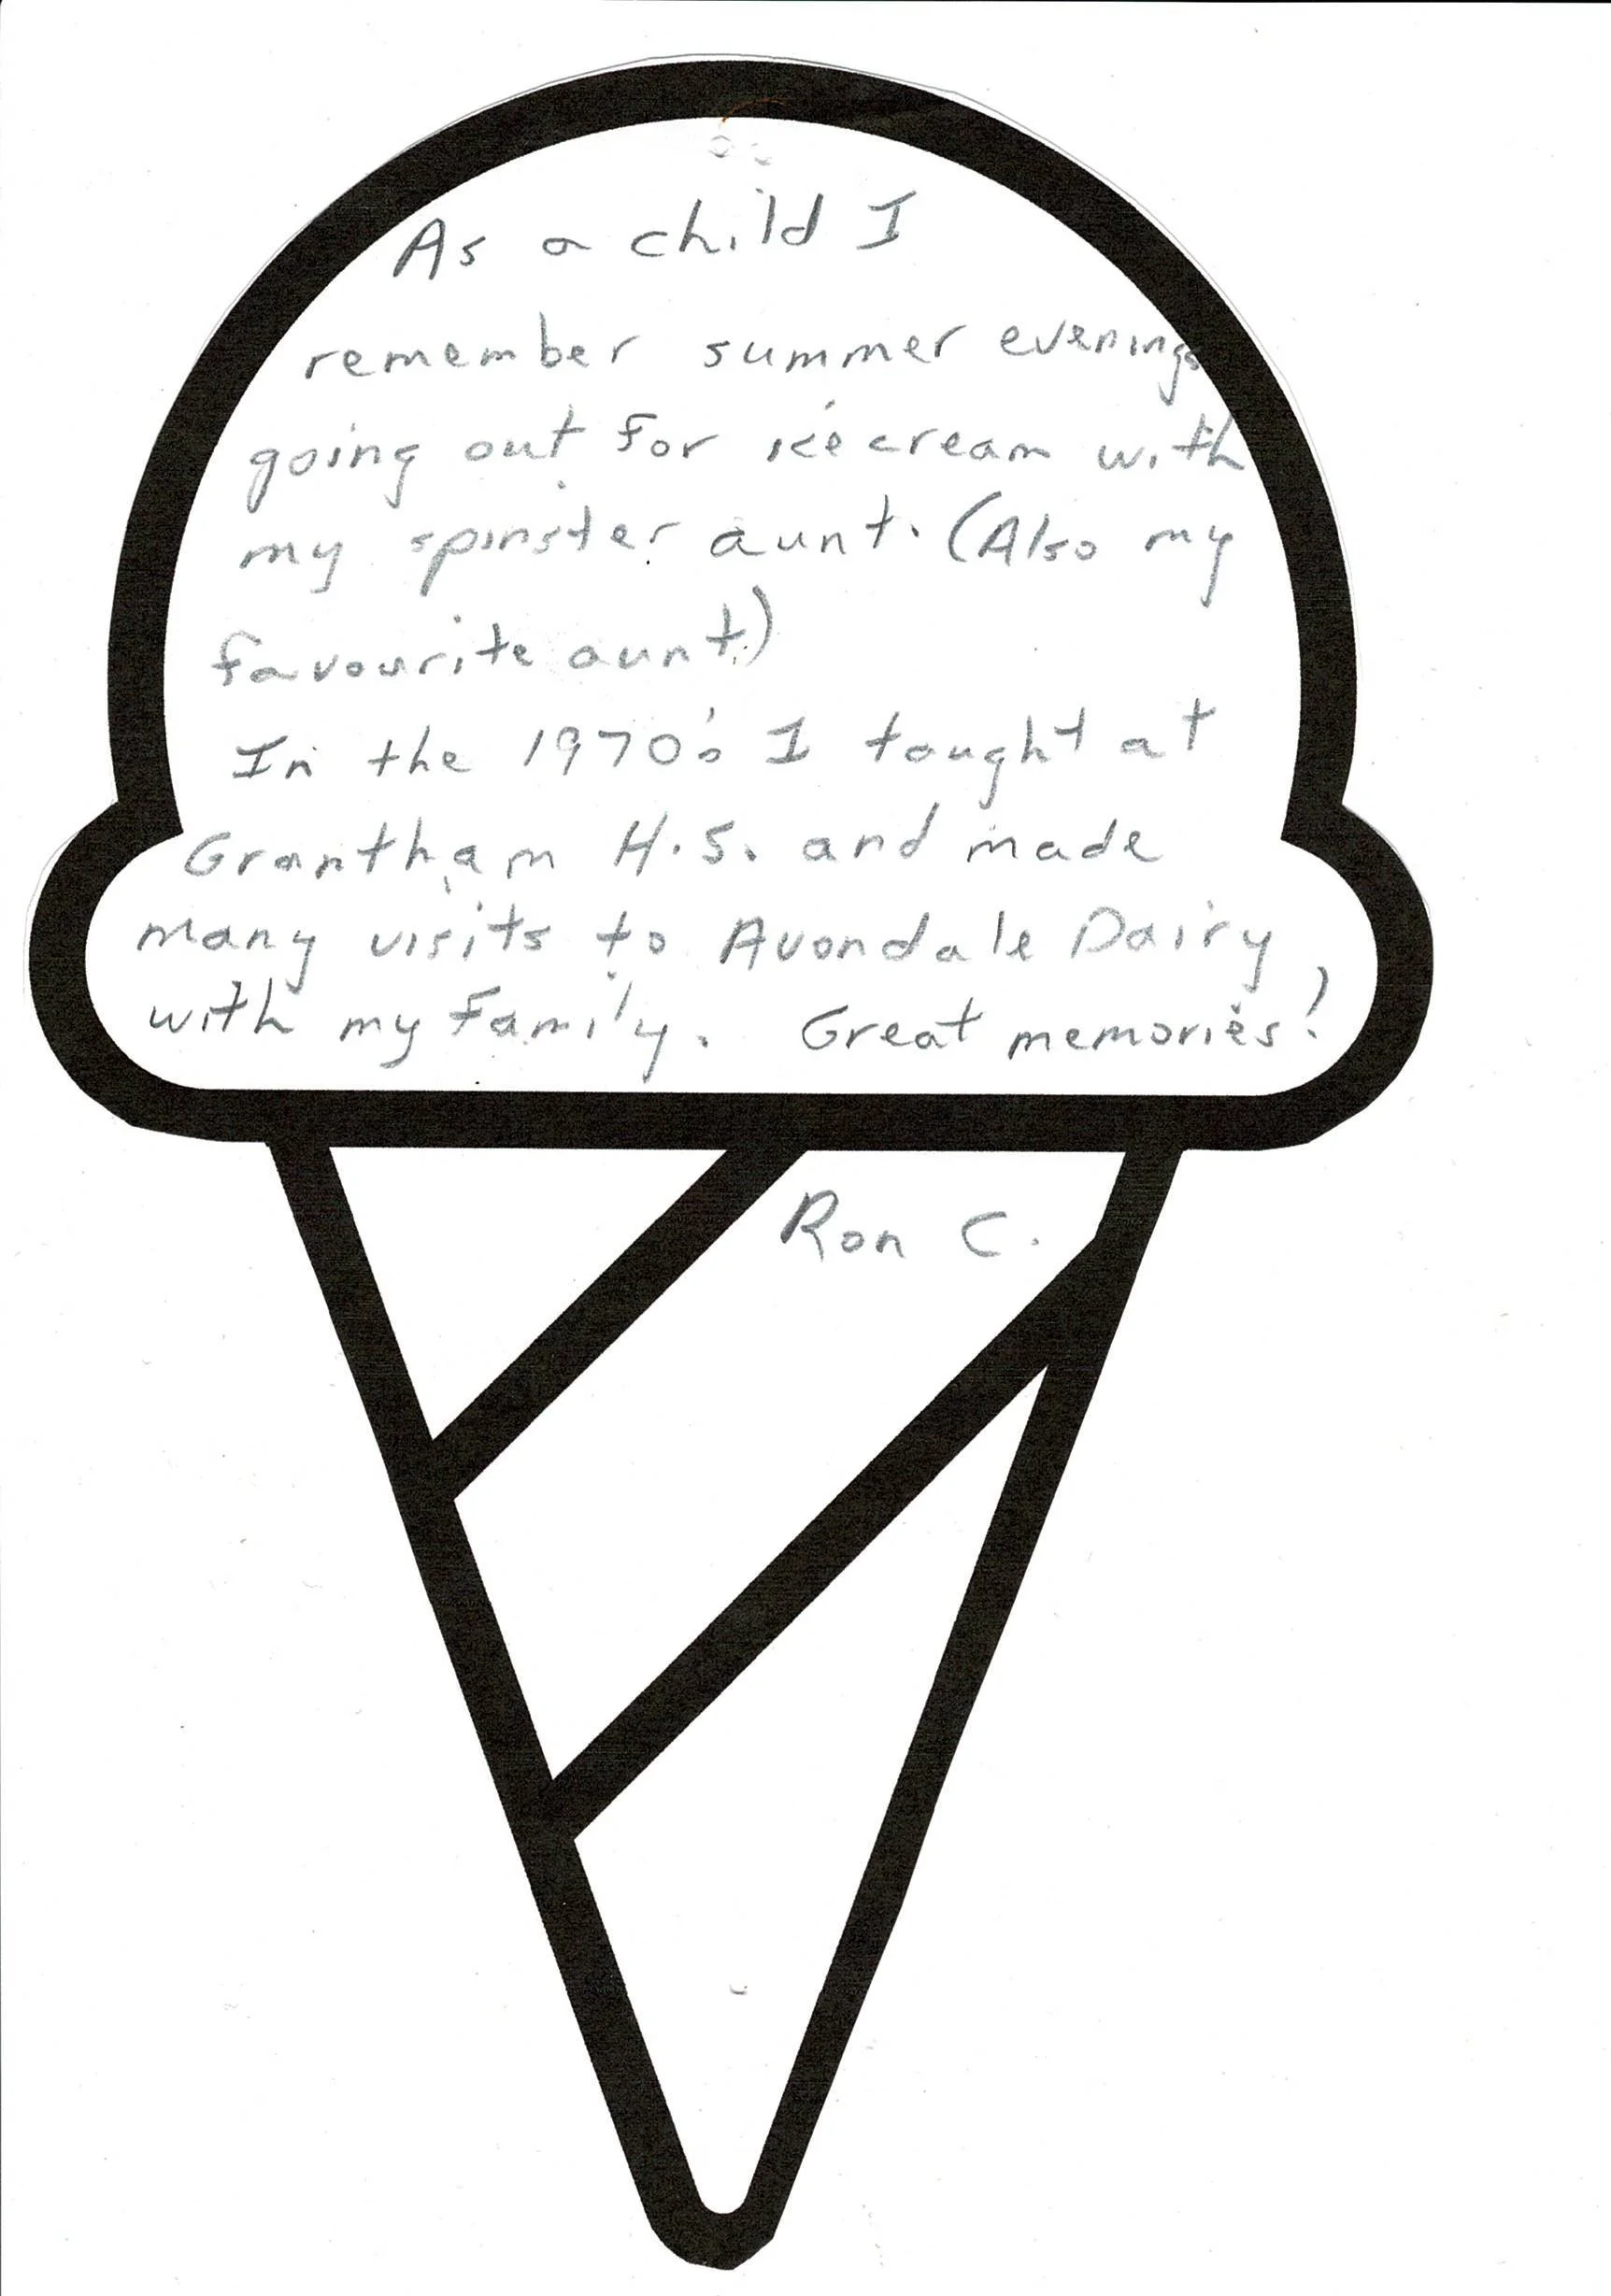 As a child I
remember summer evenings
going out for ice cream with
my spinster aunt. (Also my
favourite aunt.)
In the 1970's I taught at
Grantham H.S. and made
many visits to Avondale Dairy
with my family. Great memories!
Ron C.